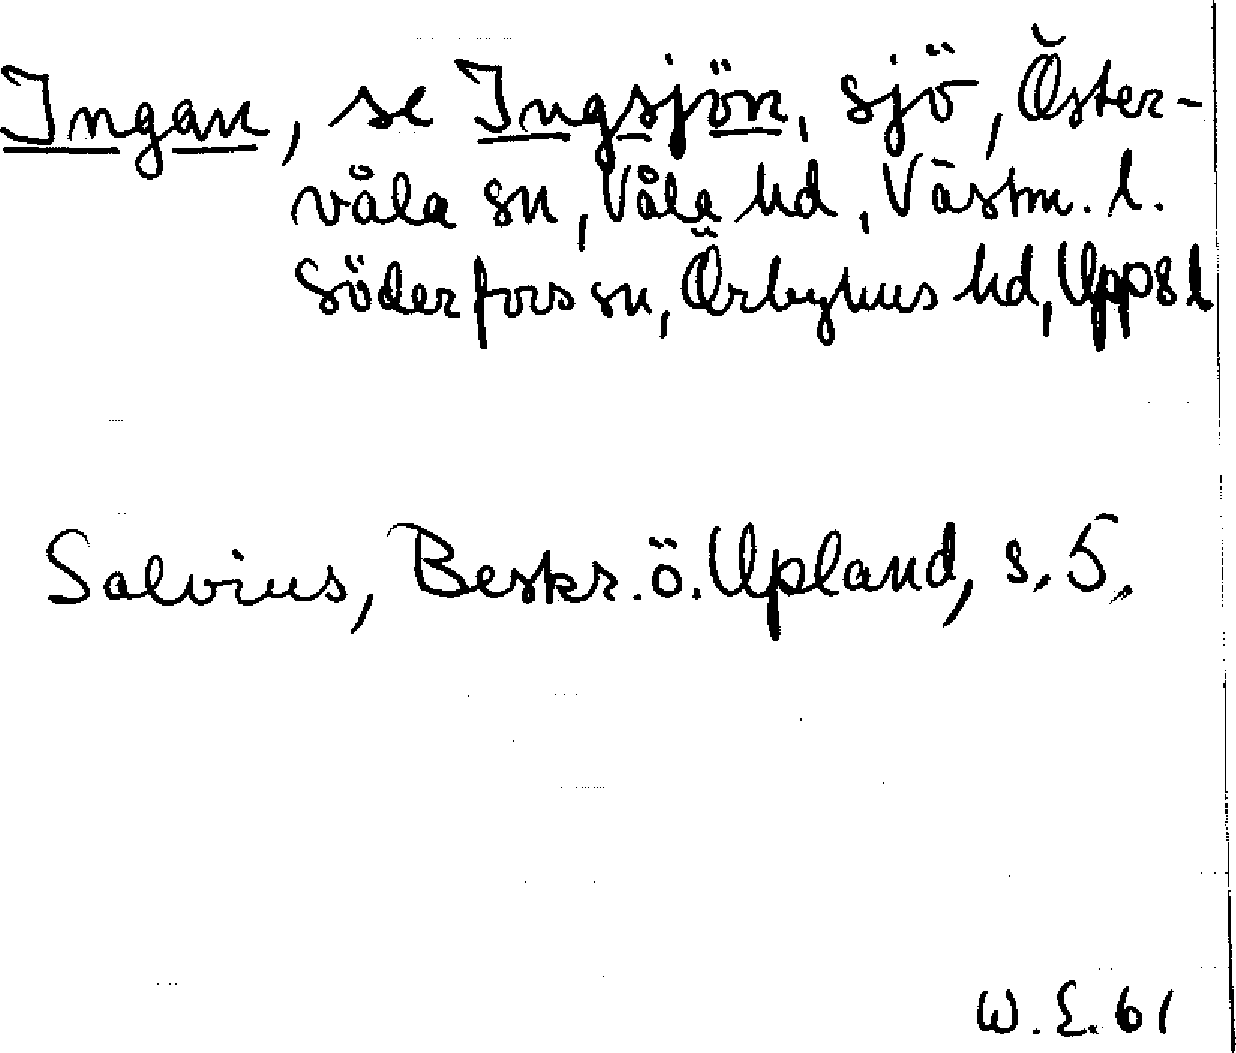 Ingan, se Ingsjön, sjö, Öster-
våla sn, Våla hd, Västm. l.
Söderfors sn, Örbyhus hd, Upps l
Salvius, Beskr. ö. Upland, s. 5.
W. E. 61